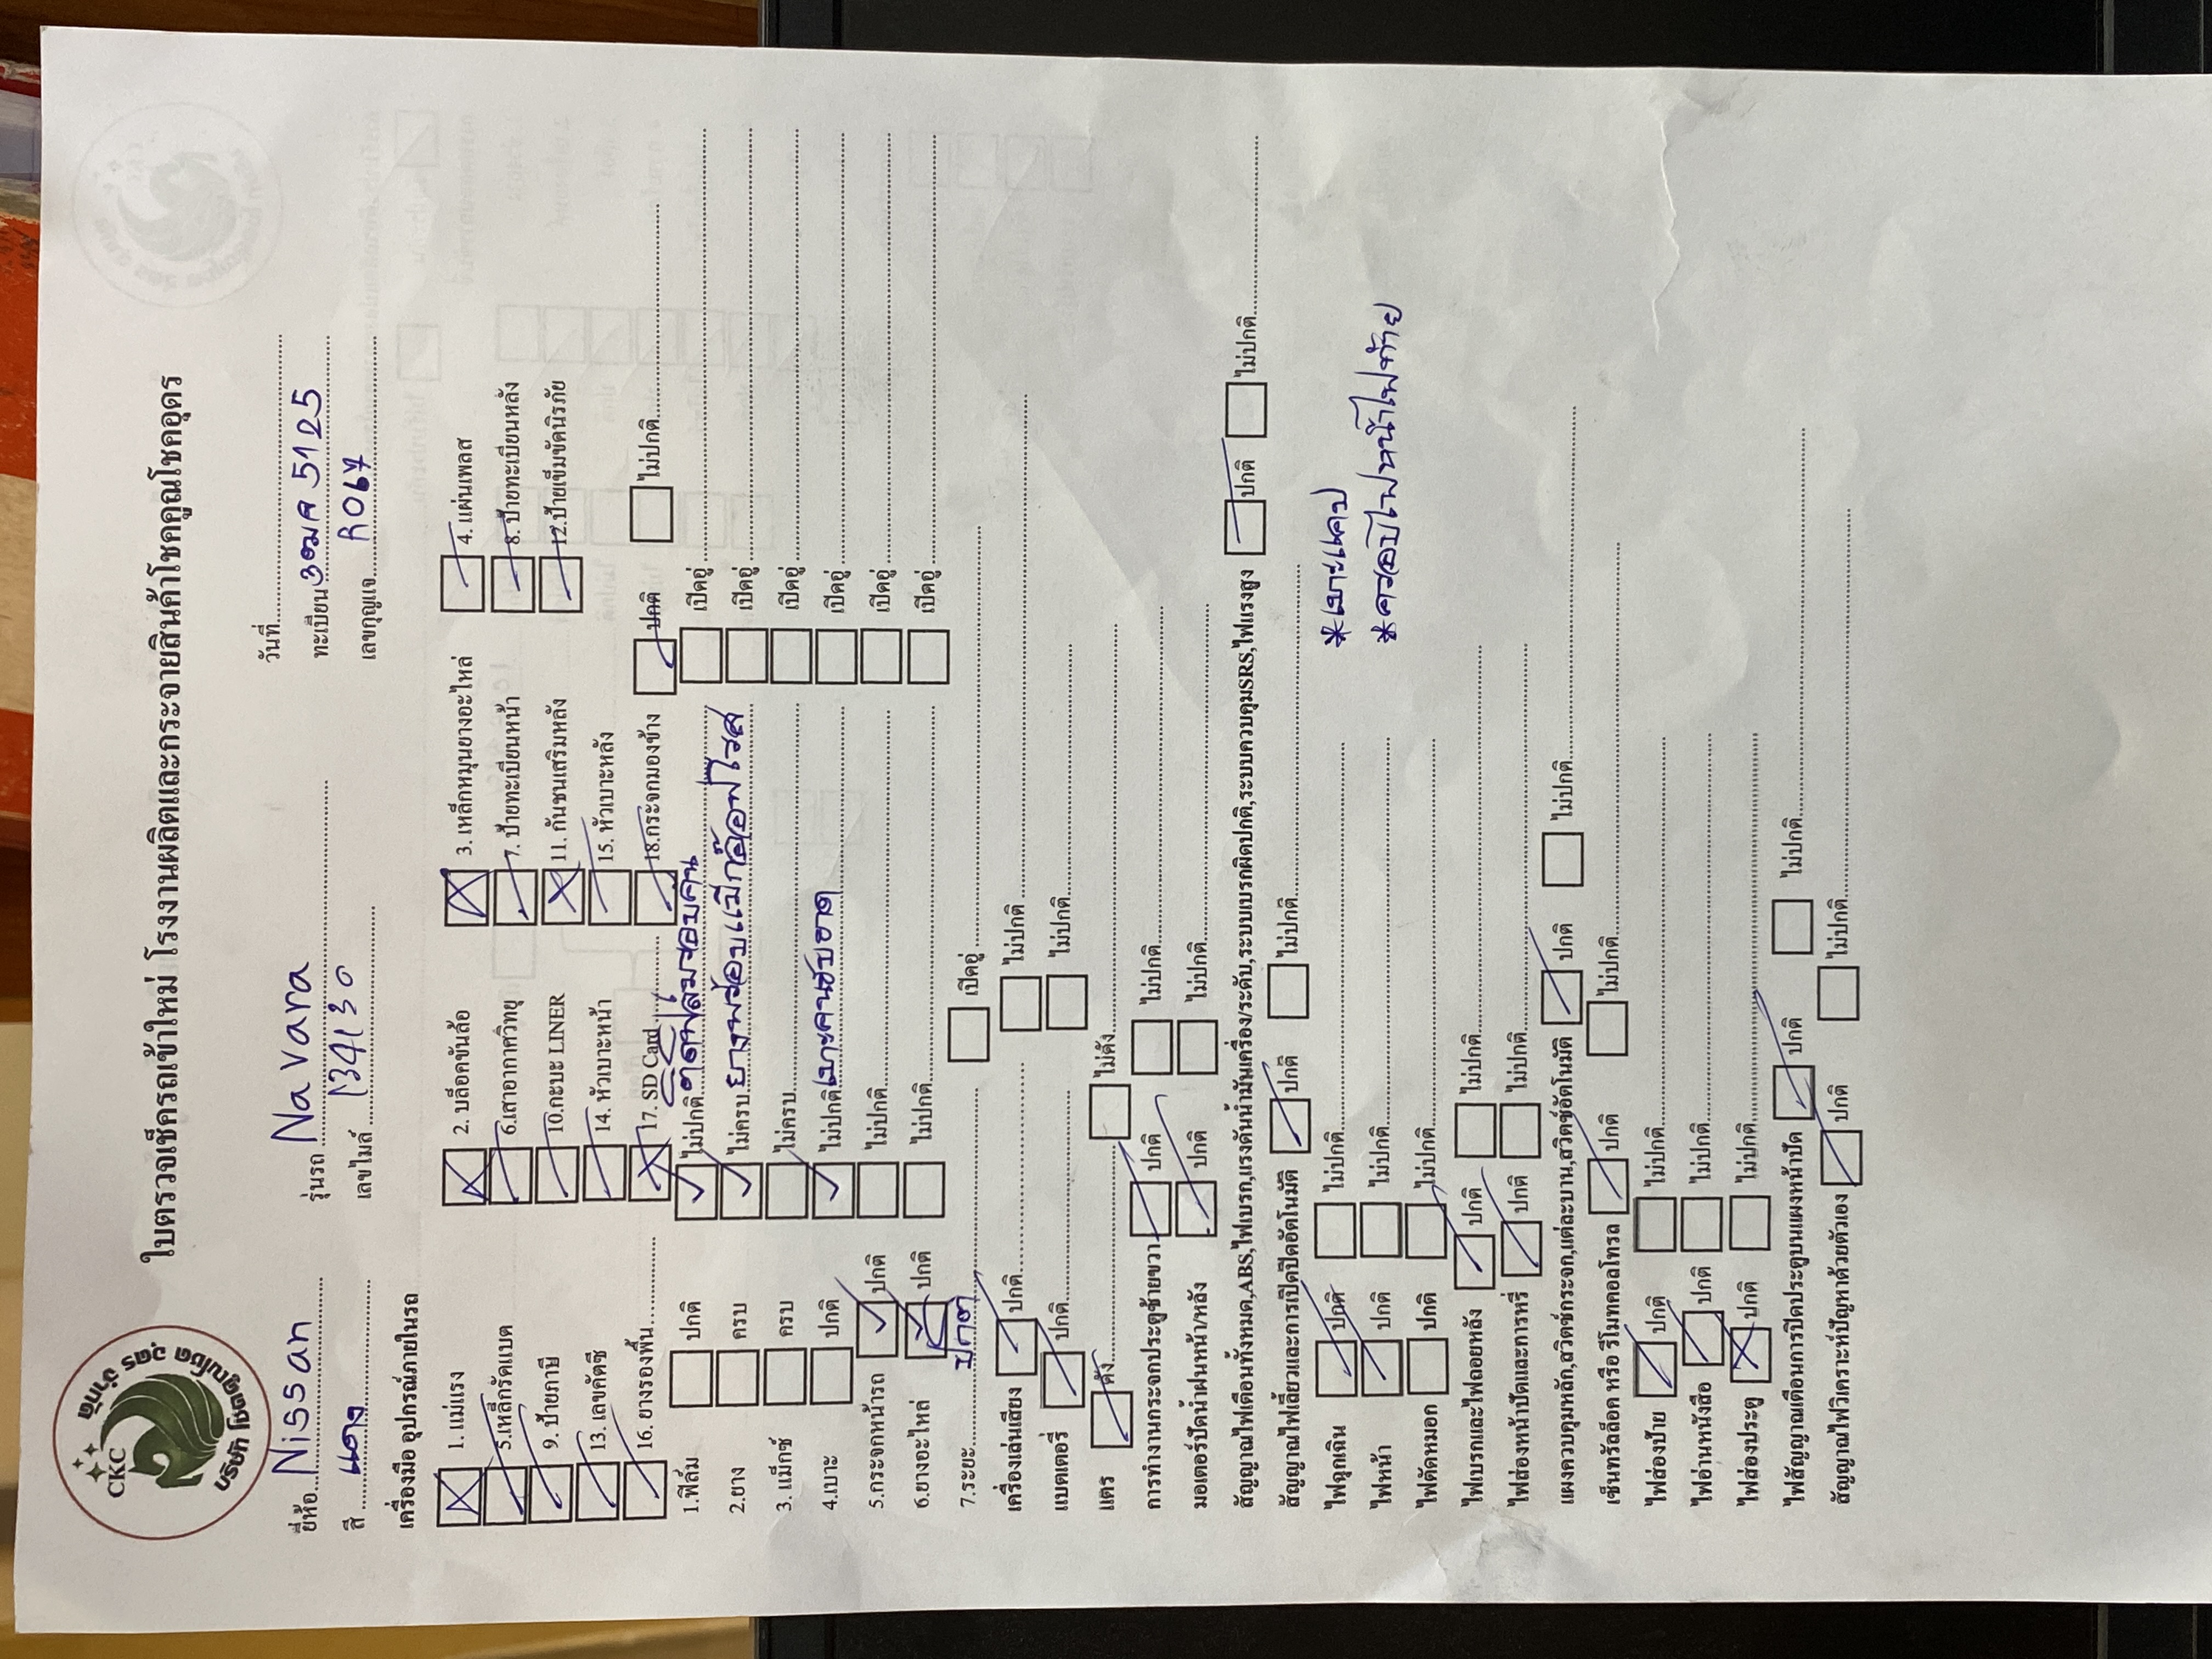 CKC
บริษัท โชคคูณโชค อุดร จำกัด
ใบตรวจเช็ครถเข้าใหม่ โรงงานผลิตและกระจายสินค้าโชคคูณโชคอุดร
วันที่
ยี่ห้อ Nissan รุ่นรถ Navara ทะเบียน 3ฒศ 5125
สี แดง เลขไมล์ 134130 เลขกุญแจ R067
เครื่องมือ อุปกรณ์ภายในรถ
1. แม่แรง 2. บล็อคขันล้อ 3. เหล็กหมุนยางอะไหล่ 4. แผ่นเพลส
5.เหล็กรัดแบต 6.เสาอากาศวิทยุ 7. ป้ายทะเบียนหน้า 8. ป้ายทะเบียนหลัง
9. ป้ายภาษี 10.กะบะ LINER 11. กันชนเสริมหลัง 12.ป้ายเข็มขัดนิรภัย
13. เลขคัตซี 14. หัวเบาะหน้า 15. หัวเบาะหลัง
16. ยางรองพื้น 17. SD Card 18.กระจกมองข้าง ปกติ ไม่ปกติ
1.ฟิล์ม ปกติ ไม่ปกติ เปิดอู่
2.ยาง ครบ ไม่ครบ เปิดอู่
3. แม็กซ์ ครบ ไม่ครบ เปิดอู่
4.เบาะ ปกติ ไม่ปกติ เบาะคนขับขาด เปิดอู่
5.กระจกหน้ารถ ปกติ ไม่ปกติ เปิดอู่
6.ยางอะไหล่ ปกติ ไม่ปกติ เปิดอู่
7.ระยะ ปกติ เปิดอู่
เครื่องเล่นเสียง ปกติ ไม่ปกติ
แบตเตอรี่ ปกติ ไม่ปกติ
แตร ดัง ไม่ดัง
การทำงานกระจกประตูซ้ายขวา ปกติ ไม่ปกติ
มอเตอร์ปัดน้ำฝนหน้า/หลัง ปกติ ไม่ปกติ
สัญญาณไฟเตือนทั้งหมด,ABS,ไฟเบรก,แรงดันน้ำมันเครื่อง/ระดับ,ระบบเบรกผิดปกติ,ระบบควบคุมSRS,ไฟแรงสูง ปกติ ไม่ปกติ
สัญญาณไฟเลี้ยวและการเปิดปิดอัตโนมัติ ปกติ ไม่ปกติ
ไฟฉุกเฉิน ปกติ ไม่ปกติ *เบาะแคป
ไฟหน้า ปกติ ไม่ปกติ *ครอบไฟหน้าไฟท้าย
ไฟตัดหมอก ปกติ ไม่ปกติ
ไฟเบรกและไฟถอยหลัง ปกติ ไม่ปกติ
ไฟส่องหน้าปัดและการหรี่ ปกติ ไม่ปกติ
แผงควบคุมหลัก,สวิตช์กระจก,แต่ละบาน,สวิตช์อัตโนมัติ ปกติ ไม่ปกติ
เซ็นทรัลล็อค หรือ รีโมทคอลโทรล ปกติ ไม่ปกติ
ไฟส่องป้าย ปกติ ไม่ปกติ
ไฟอ่านหนังสือ ปกติ ไม่ปกติ
ไฟส่องประตู ปกติ ไม่ปกติ
ไฟสัญญาณเตือนการปิดประตูบนแผงหน้าปัด ปกติ ไม่ปกติ
สัญญาณไฟวิเคราะห์ปัญหาด้วยตัวเอง ปกติ ไม่ปกติ